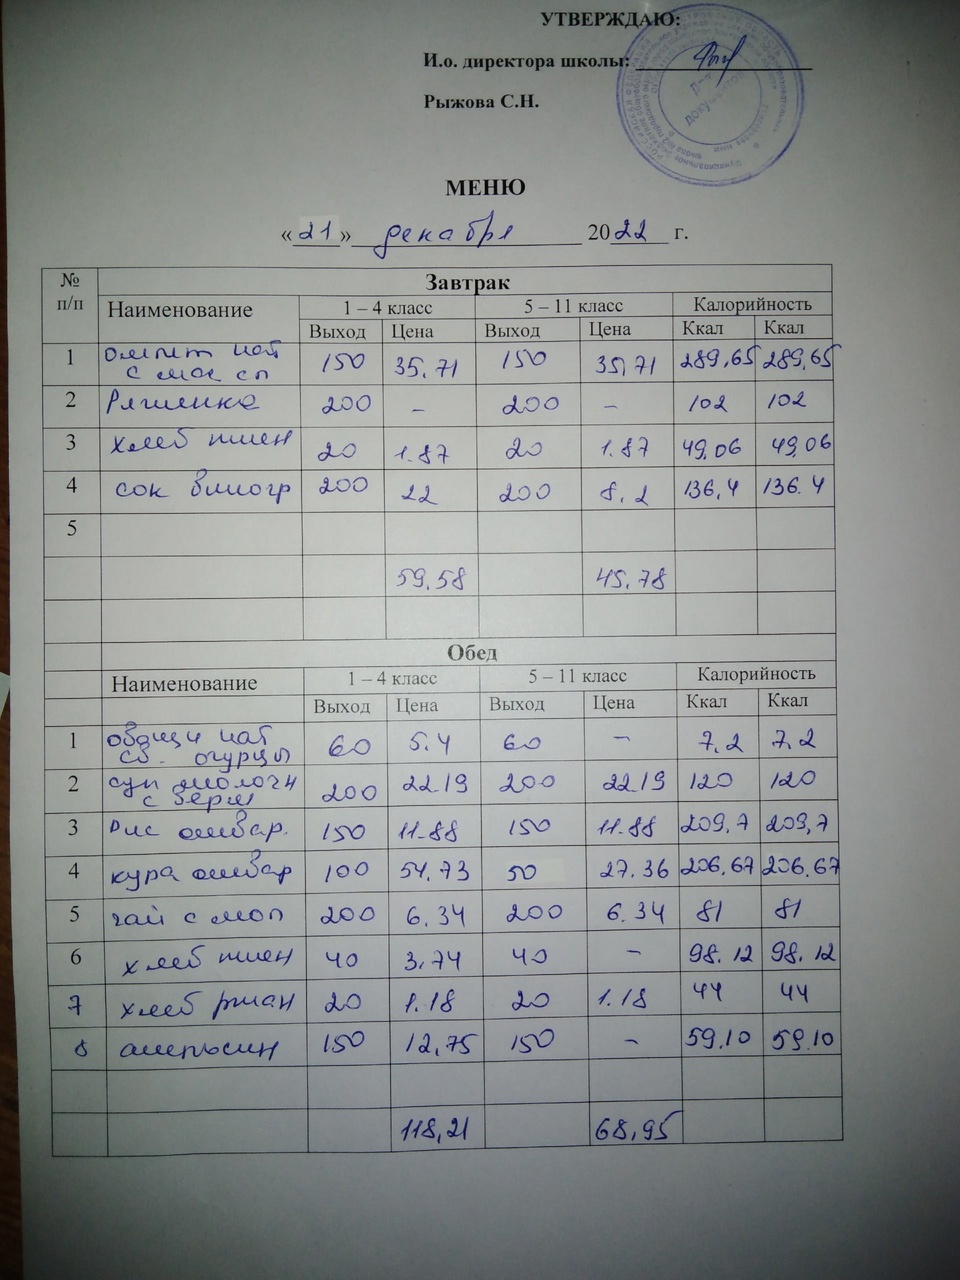 УТВЕРЖДАЮ:
И.о. директора школы:
Рыжова С.Н.
МЕНЮ
« 21 » декабря 2022 г.
№ п/п Завтрак
Наименование 1 – 4 класс 5 – 11 класс Калорийность
Выход Цена Выход Цена Ккал Ккал
1 Омлет нат 150 35.71 150 35,71 289,65 289,65
с мас сл
2 Ряженка 200 – 200 – 102 102
3 хлеб пшен 20 1.87 20 1.87 49,06 49,06
4 сок виногр 200 22 200 8,2 136,4 136.4
5
59,58 45,78
Обед
Наименование 1 – 4 класс 5 – 11 класс Калорийность
Выход Цена Выход Цена Ккал Ккал
1 овощи нат 60 5.4 60 – 7,2 7,2
св. огурцы
2 суп 200 22.19 200 22.19 120 120
3 Рис отвар. 150 11.88 150 11.88 209,7 209,7
4 кура отвар 100 54,73 50 27.36 206,67 206,67
5 чай с 200 6.34 200 6.34 81 81
6 хлеб пшен 40 3.74 40 – 98.12 98.12
7 хлеб ржан 20 1.18 20 1.18 44 44
8 апельсин 150 12,75 150 – 59,10 59.10
118,21 68,95